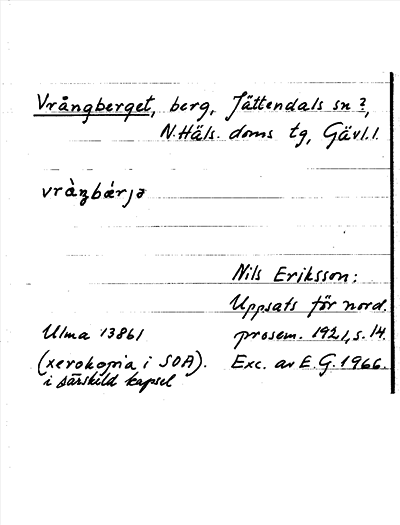 Vrångberget, berg, Jättendals sn ?,
N. Häls. doms tg, Gävl. l.
vràŋbárjə
Nils Eriksson:
Uppsats för nord.
Ulma 13861 prosem. 1921, s. 14.
(xerokopia i SOA). Exc. av E. G. 1966.
i särskild kapsel